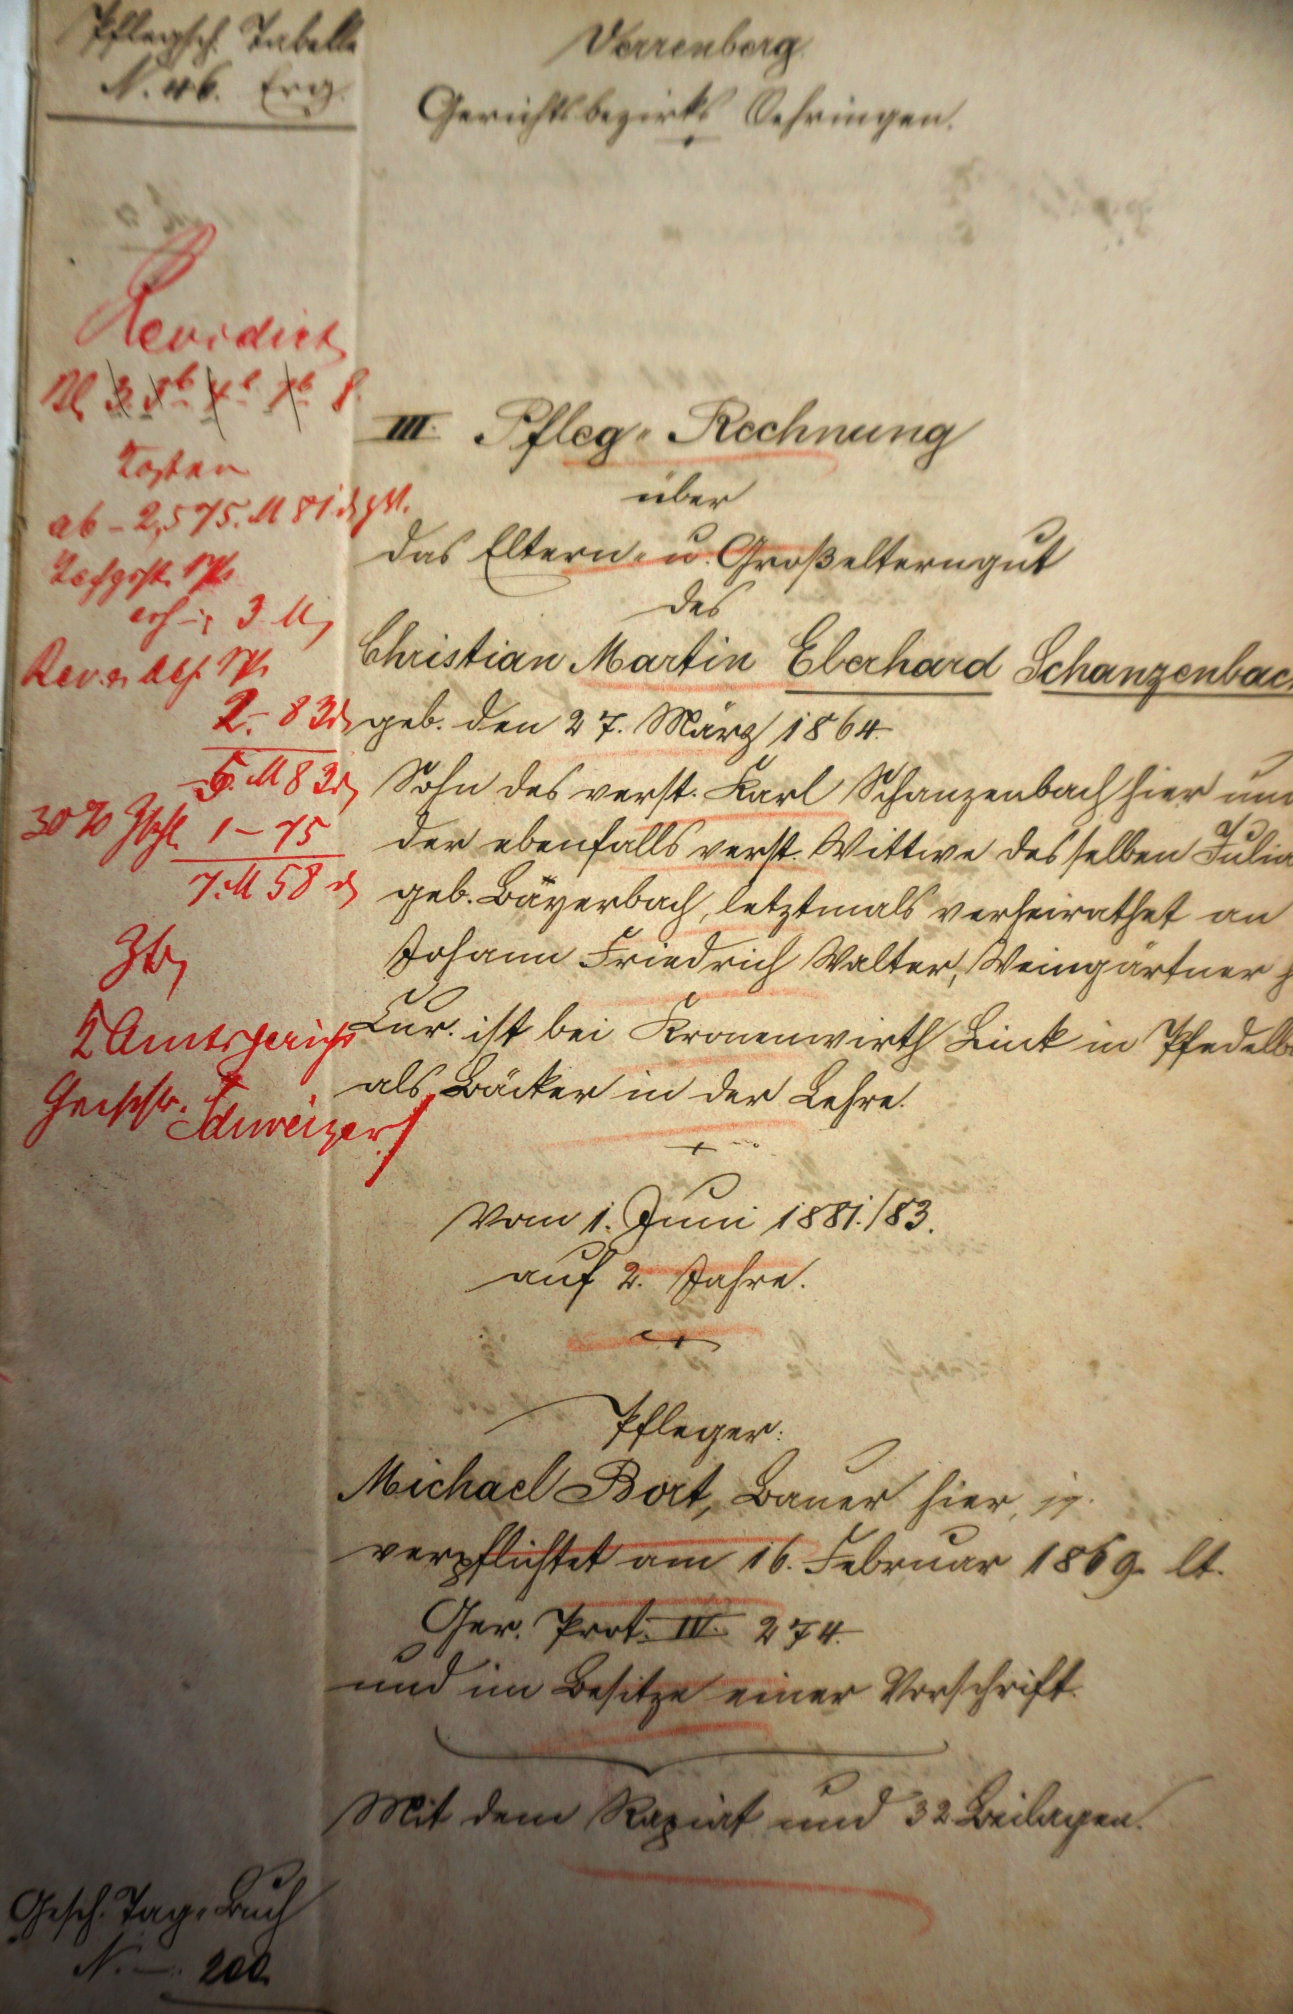 Pflegsch. Tabelle
N. 46. Erg.
Verrenberg.
Gerichtsbezirks Oehringen.
Revidirt
Bl. 3. 3b 4b 7b 8.
Kosten
ab - 2,575. M 81 d
3 M
2.- 83 d
5. M 83 d
30 % 1 - 75
7. M 58 d
K. Amtsgericht
Schweizer
III. Pfleg-Rechnung
über
das Eltern- u. Großelterngut
des
Christian Martin Eberhard Schanzenbac
geb. den 27. März 1864.
Sohn des verst. Karl Schanzenbach hier un
der ebenfalls verst. Wittwe desselben Julia
geb. Bäyerbach, letztmals verheirathet an
Johann Friedrich Walter, Weingärtner
Cur. ist bei Kronenwirth Link in Pfedelb
als Bäcker in der Lehre.
Vom 1. Juni 1881./83.
auf 2. Jahre.
Pfleger:
Michael Bort, Bauer hier,
verpflichtet am 16. Februar 1869. lt.
Ger. Prot. IV. 274.
und im Besitze einer Vorschrift.
Mit dem Rapiat und 32 Beilagen.
Gesch. Tag-Buch
N. — 200.